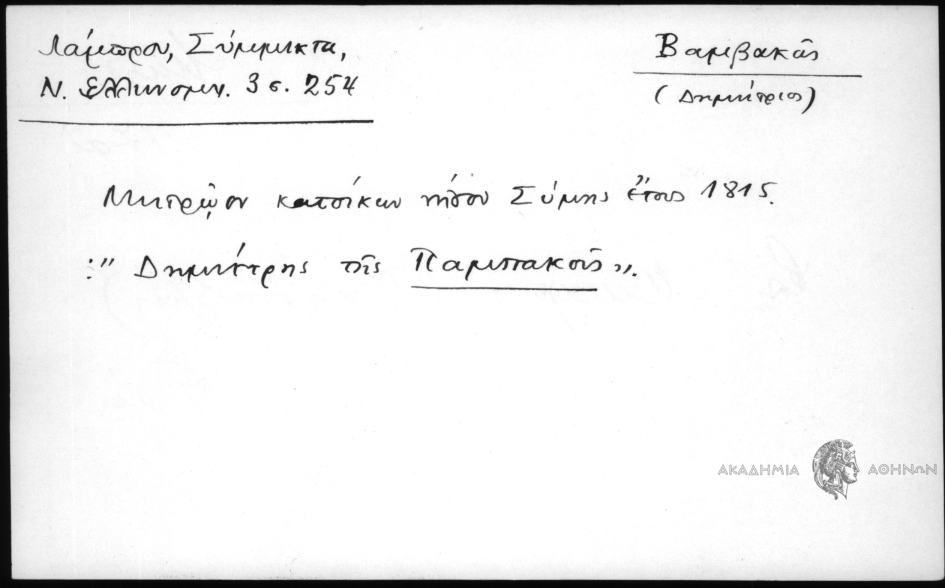 Λάμπρου, Σύμμικτα,
Ν. Ἑλληνομν. 3 σ. 254
Βαμβακᾶς
(Δημήτριος)
Μητρῷον κατοίκων νήσου Σύμης ἔτους 1815.
:" Δημήτρης τῆς Παμπακοῦς".
ΑΚΑΔΗΜΙΑ ΑΘΗΝΩΝ